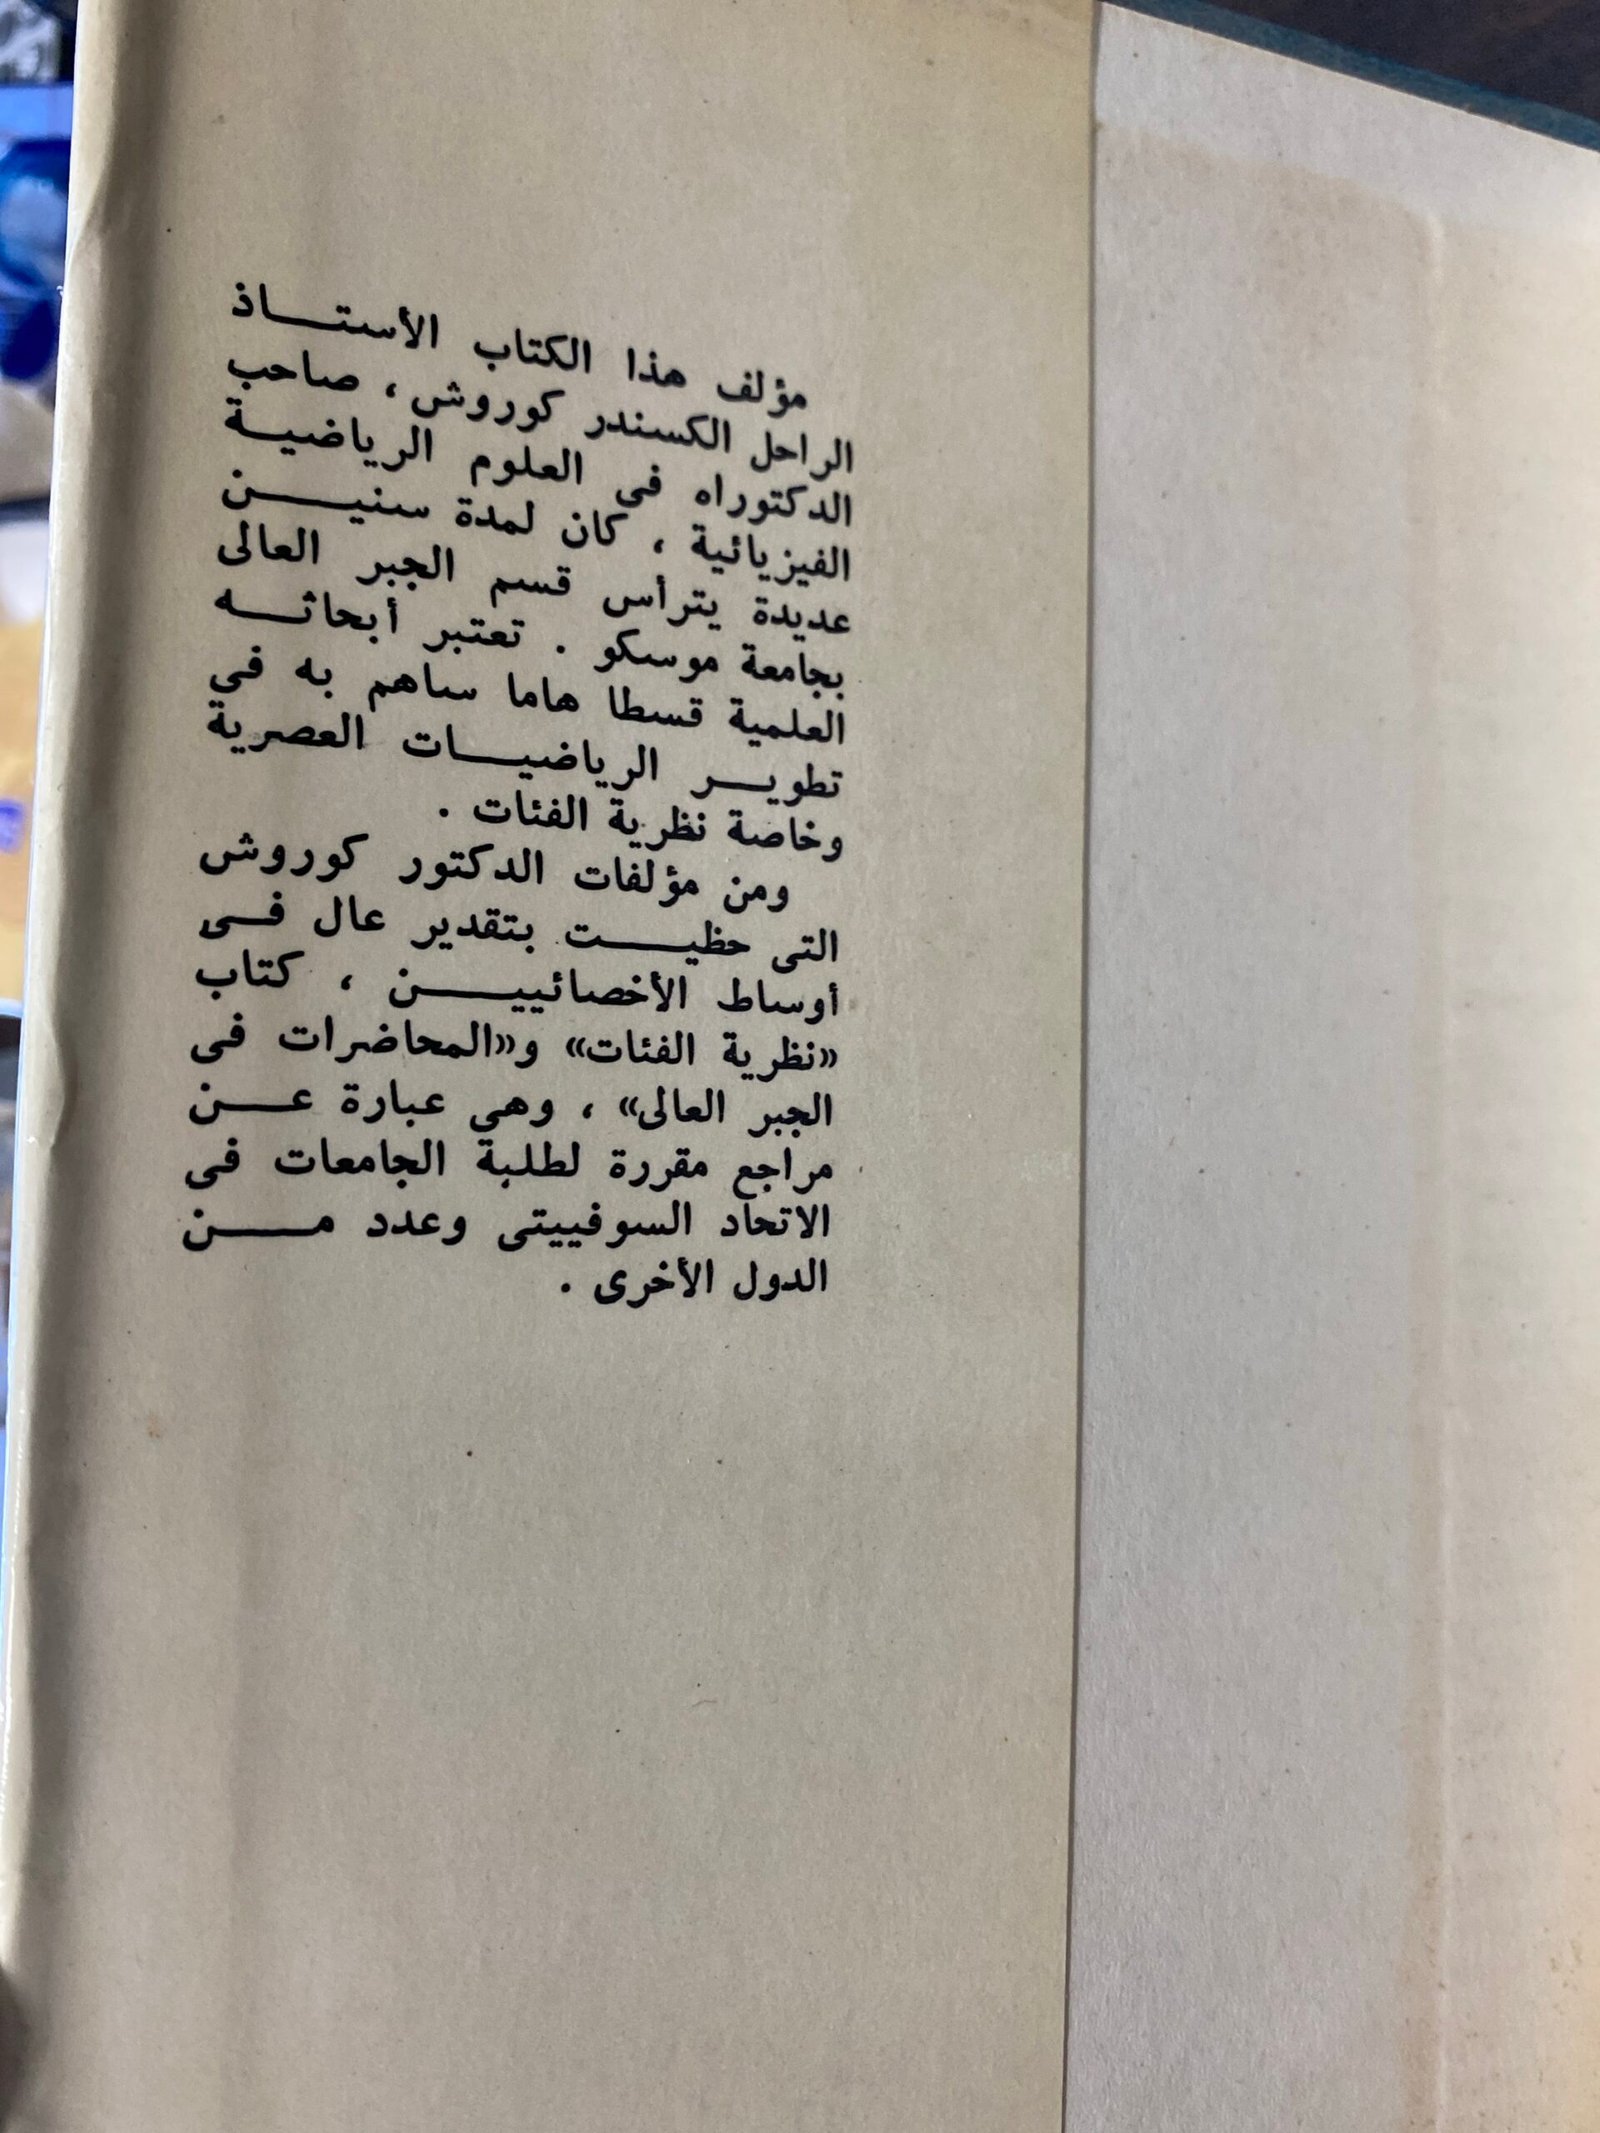 مؤلف هذا الكتاب الأستاذ
الراحل الكسندر كوروش، صاحب
الدكتوراه فى العلوم الرياضية
الفيزيائية ، كان لمدة سنين
عديدة يترأس قسم الجبر العالى
بجامعة موسكو . تعتبر أبحاثه
العلمية قسطا هاما ساهم به فى
تطوير الرياضيات العصرية
وخاصة نظرية الفئات .
ومن مؤلفات الدكتور كوروش
التى حظيت بتقدير عال فى
أوساط الأخصائيين ، كتاب
«نظرية الفئات» و«المحاضرات فى
الجبر العالى» ، وهى عبارة عن
مراجع مقررة لطلبة الجامعات فى
الاتحاد السوفييتى وعدد من
الدول الأخرى .